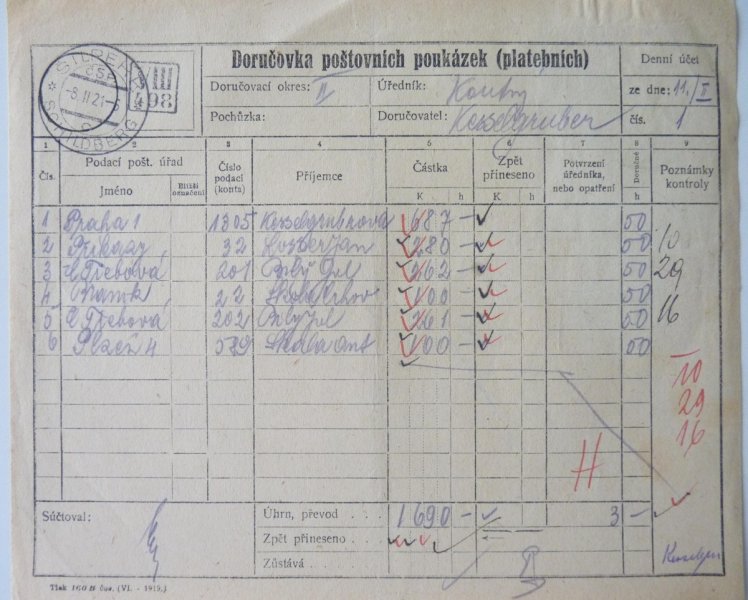 Doručovka poštovních poukázek (platebních)
Denní účet
Doručovací okres: II
Úředník: Koutný
ze dne: 11./II
Pochůzka:
Doručovatel: Kesselgruber
čís. 1
ČSP
-8.II 21-
SCHILDBERG
III
498
1 2 3 4 5 6 7 8 9
Čís.
Podací pošt. úřad
Jméno
Bližší označení
Číslo podací (konta)
Příjemce
Částka
K h
Zpět přineseno
K h
Potvrzení úředníka, nebo opatření
Doručné
h
Poznámky kontroly
1 Praha 1 1305 687 - 50
2 32 280 - 50 10
3 Č Třebová 201 262 - 50 29
4 22 100 - 50 16
5 Č Třebová 202 261 - 50
6 Plzeň 4 579 Skála Ant 100 - 50
10
29
16
H
Súčtoval:
Úhrn, převod . . . 1690 - 3 -
Zpět přineseno . . .
Zůstává . . .
Tisk 160 B čus. (VI. - 1919.)